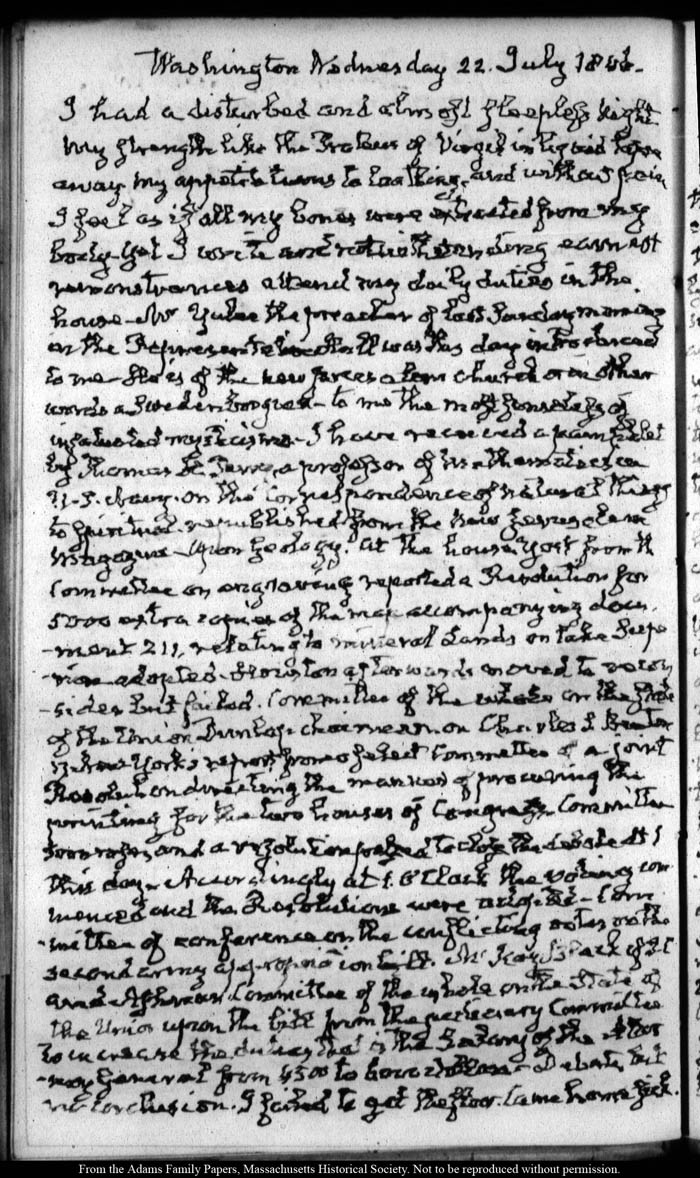 Washington Wednesday 22. July 1846.
I had a disturbed and almost sleepless night
My strength like the of Virgil in liquid
away my appetite turns to loathing, and without pain
I feel as if all my bones were extracted from my
body. yet I write and notwithstanding earnest
remonstrances attend my daily duties in the
house. Mr Yulee the preacher of last Sunday morning
in the Representative Hall was this day introduced
to me. He is of the new Jerusalem church or in other
words a Swedenborgian - to me the most senseless of
infatuated mysticisms - I have received a pamphlet
by Thomas a professor of Mathematics in
U.S. Navy. on the Correspondence of natural things
to spiritual republished from the New Jerusalem
Magazine - upon Geology. At the house, York from the
Committee on engraving reported a Resolution for
5000 extra copies of the map accompanying docu
-ment 211, relating to mineral Lands on Lake Supe
-rior adopted. Houston afterwards moved to recon
-sider but failed. Committee of the whole on the State
of the Union Dunlap chairman on Charles S Benton
N. New York's report from select Committee of a joint
Resolution directing the manner of procuring the
printing for the two houses of Congress. Committee
soon rose, and a resolution passed to close the debate at 1
this day. Accordingly at 1. O'Clock the voting com
menced and the Resolutions were - Com
-mittee of conference on the conflicting votes on the
second army appropriation bill. McKay, Black of S.C
and Committee of the whole on the State of
the Union upon the bill from the Judiciary Committee
to increase the duties and the Salary of the Attor
-ney General from 4500 to 6000 dollars - Debate, but
no conclusion. I failed to get the floor. Came home sick.
From the Adams Family Papers, Massachusetts Historical Society. Not to be reproduced without permission.